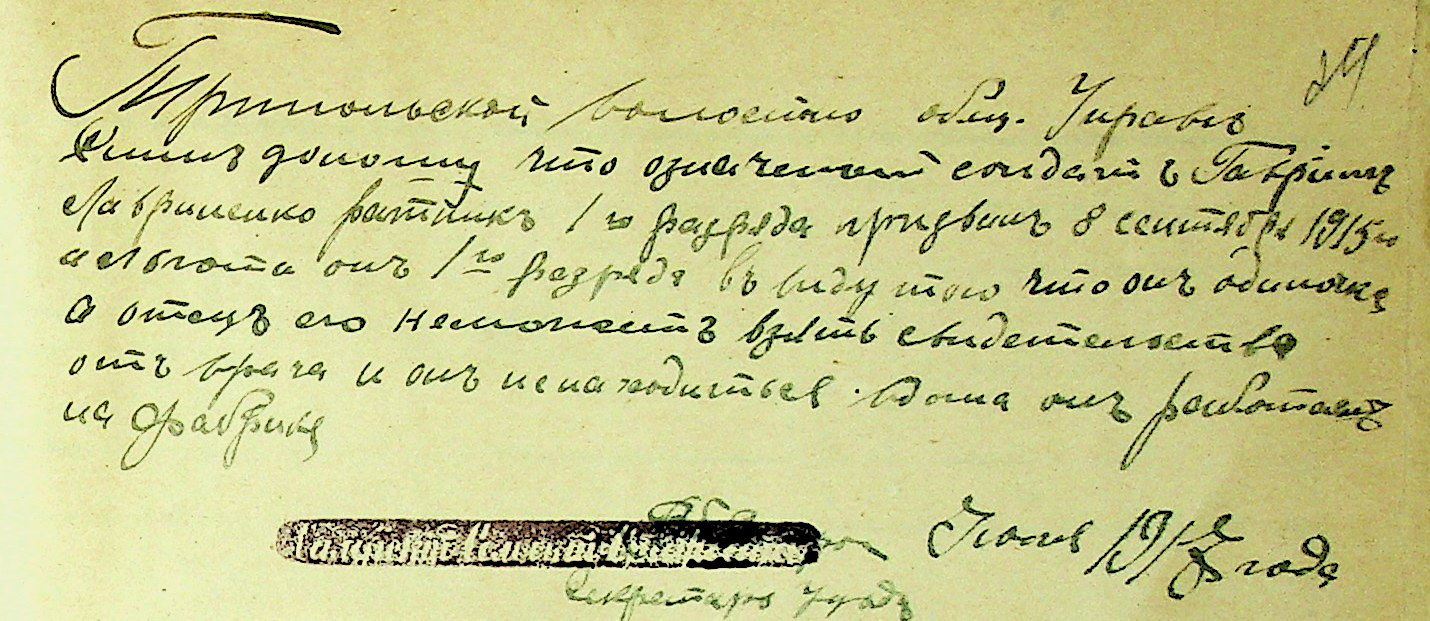 24
Трипольской волостно общ. Управѣ
Симъ доношу что означеный солдатъ Гаврилъ
Лавриненко ратникъ 1го разряда призванъ 8 сентября 1915го
а льгота онъ 1го разряда въ виду того что онъ одиночка
а отецъ его неможетъ взять свидетельство
отъ врача и онъ ненаходиться вдома онъ работаетъ
на фабрике
Июля 1917 года
Секретарь